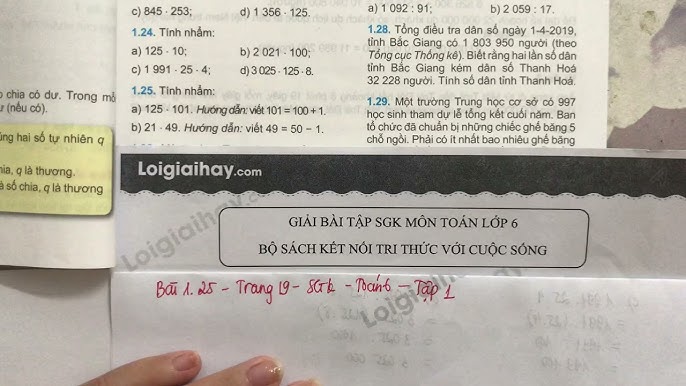 c) 845 · 253;
d) 1 356 · 125.
1.24. Tính nhẩm:
a) 125 · 10;
b) 2 021 · 100;
c) 1 991 · 25 · 4;
d) 3 025 · 125 · 8.
1.25. Tính nhẩm:
a) 125 · 101. Hướng dẫn: viết 101 = 100 + 1.
b) 21 · 49. Hướng dẫn: viết 49 = 50 − 1.
a) 1 092 : 91;
b) 2 059 : 17.
1.28. Tổng điều tra dân số ngày 1-4-2019,
tỉnh Bắc Giang có 1 803 950 người (theo
Tổng cục Thống kê). Biết rằng hai lần số dân
tỉnh Bắc Giang kém dân số Thanh Hoá
32 228 người. Tính số dân tỉnh Thanh Hoá.
1.29. Một trường Trung học cơ sở có 997
học sinh tham dự lễ tổng kết cuối năm. Ban
tổ chức đã chuẩn bị những chiếc ghế băng 5
chỗ ngồi. Phải có ít nhất bao nhiêu ghế băng
chia có dư. Trong
(nếu có).
hai số tự nhiên q
chia, q là thương.
số chia, q là thương
Loigiaihay.com
GIẢI BÀI TẬP SGK MÔN TOÁN LỚP 6
BỘ SÁCH KẾT NỐI TRI THỨC VỚI CUỘC SỐNG
Bài 1.25 - Trang 19 - SGK - Toán 6 - Tập 1
Loigiaihay.com
Loigiaihay.com